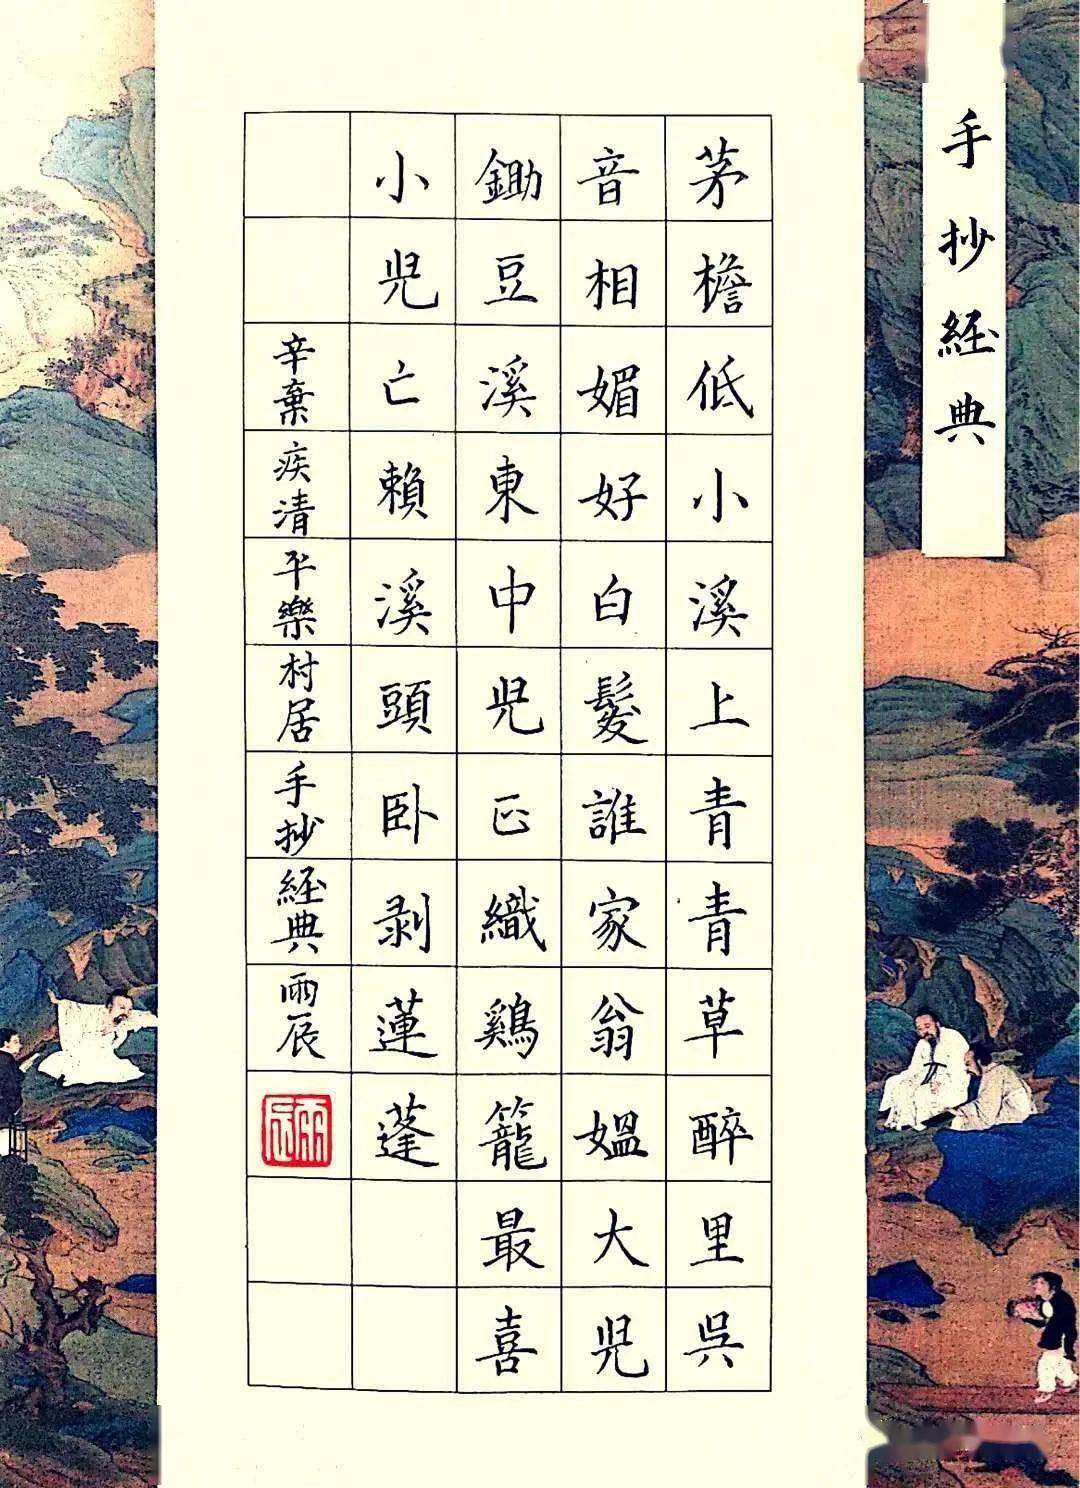 手抄經典
茅檐低小溪上青青草醉里吳
音相媚好白髮誰家翁媪大兒
鋤豆溪東中兒正織鷄籠最喜
小兒亡賴溪頭卧剥蓮蓬
辛棄疾清平樂村居手抄經典雨辰
雨辰